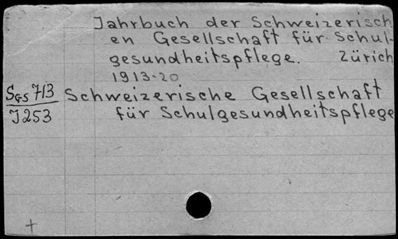 Jahrbuch der Schweizerisch
en Gesellschaft für Schul-
gesundheitspflege. Zürich
1913-20
SGS 713 Schweizerische Gesellschaft
J253 für Schulgesundheitspflege